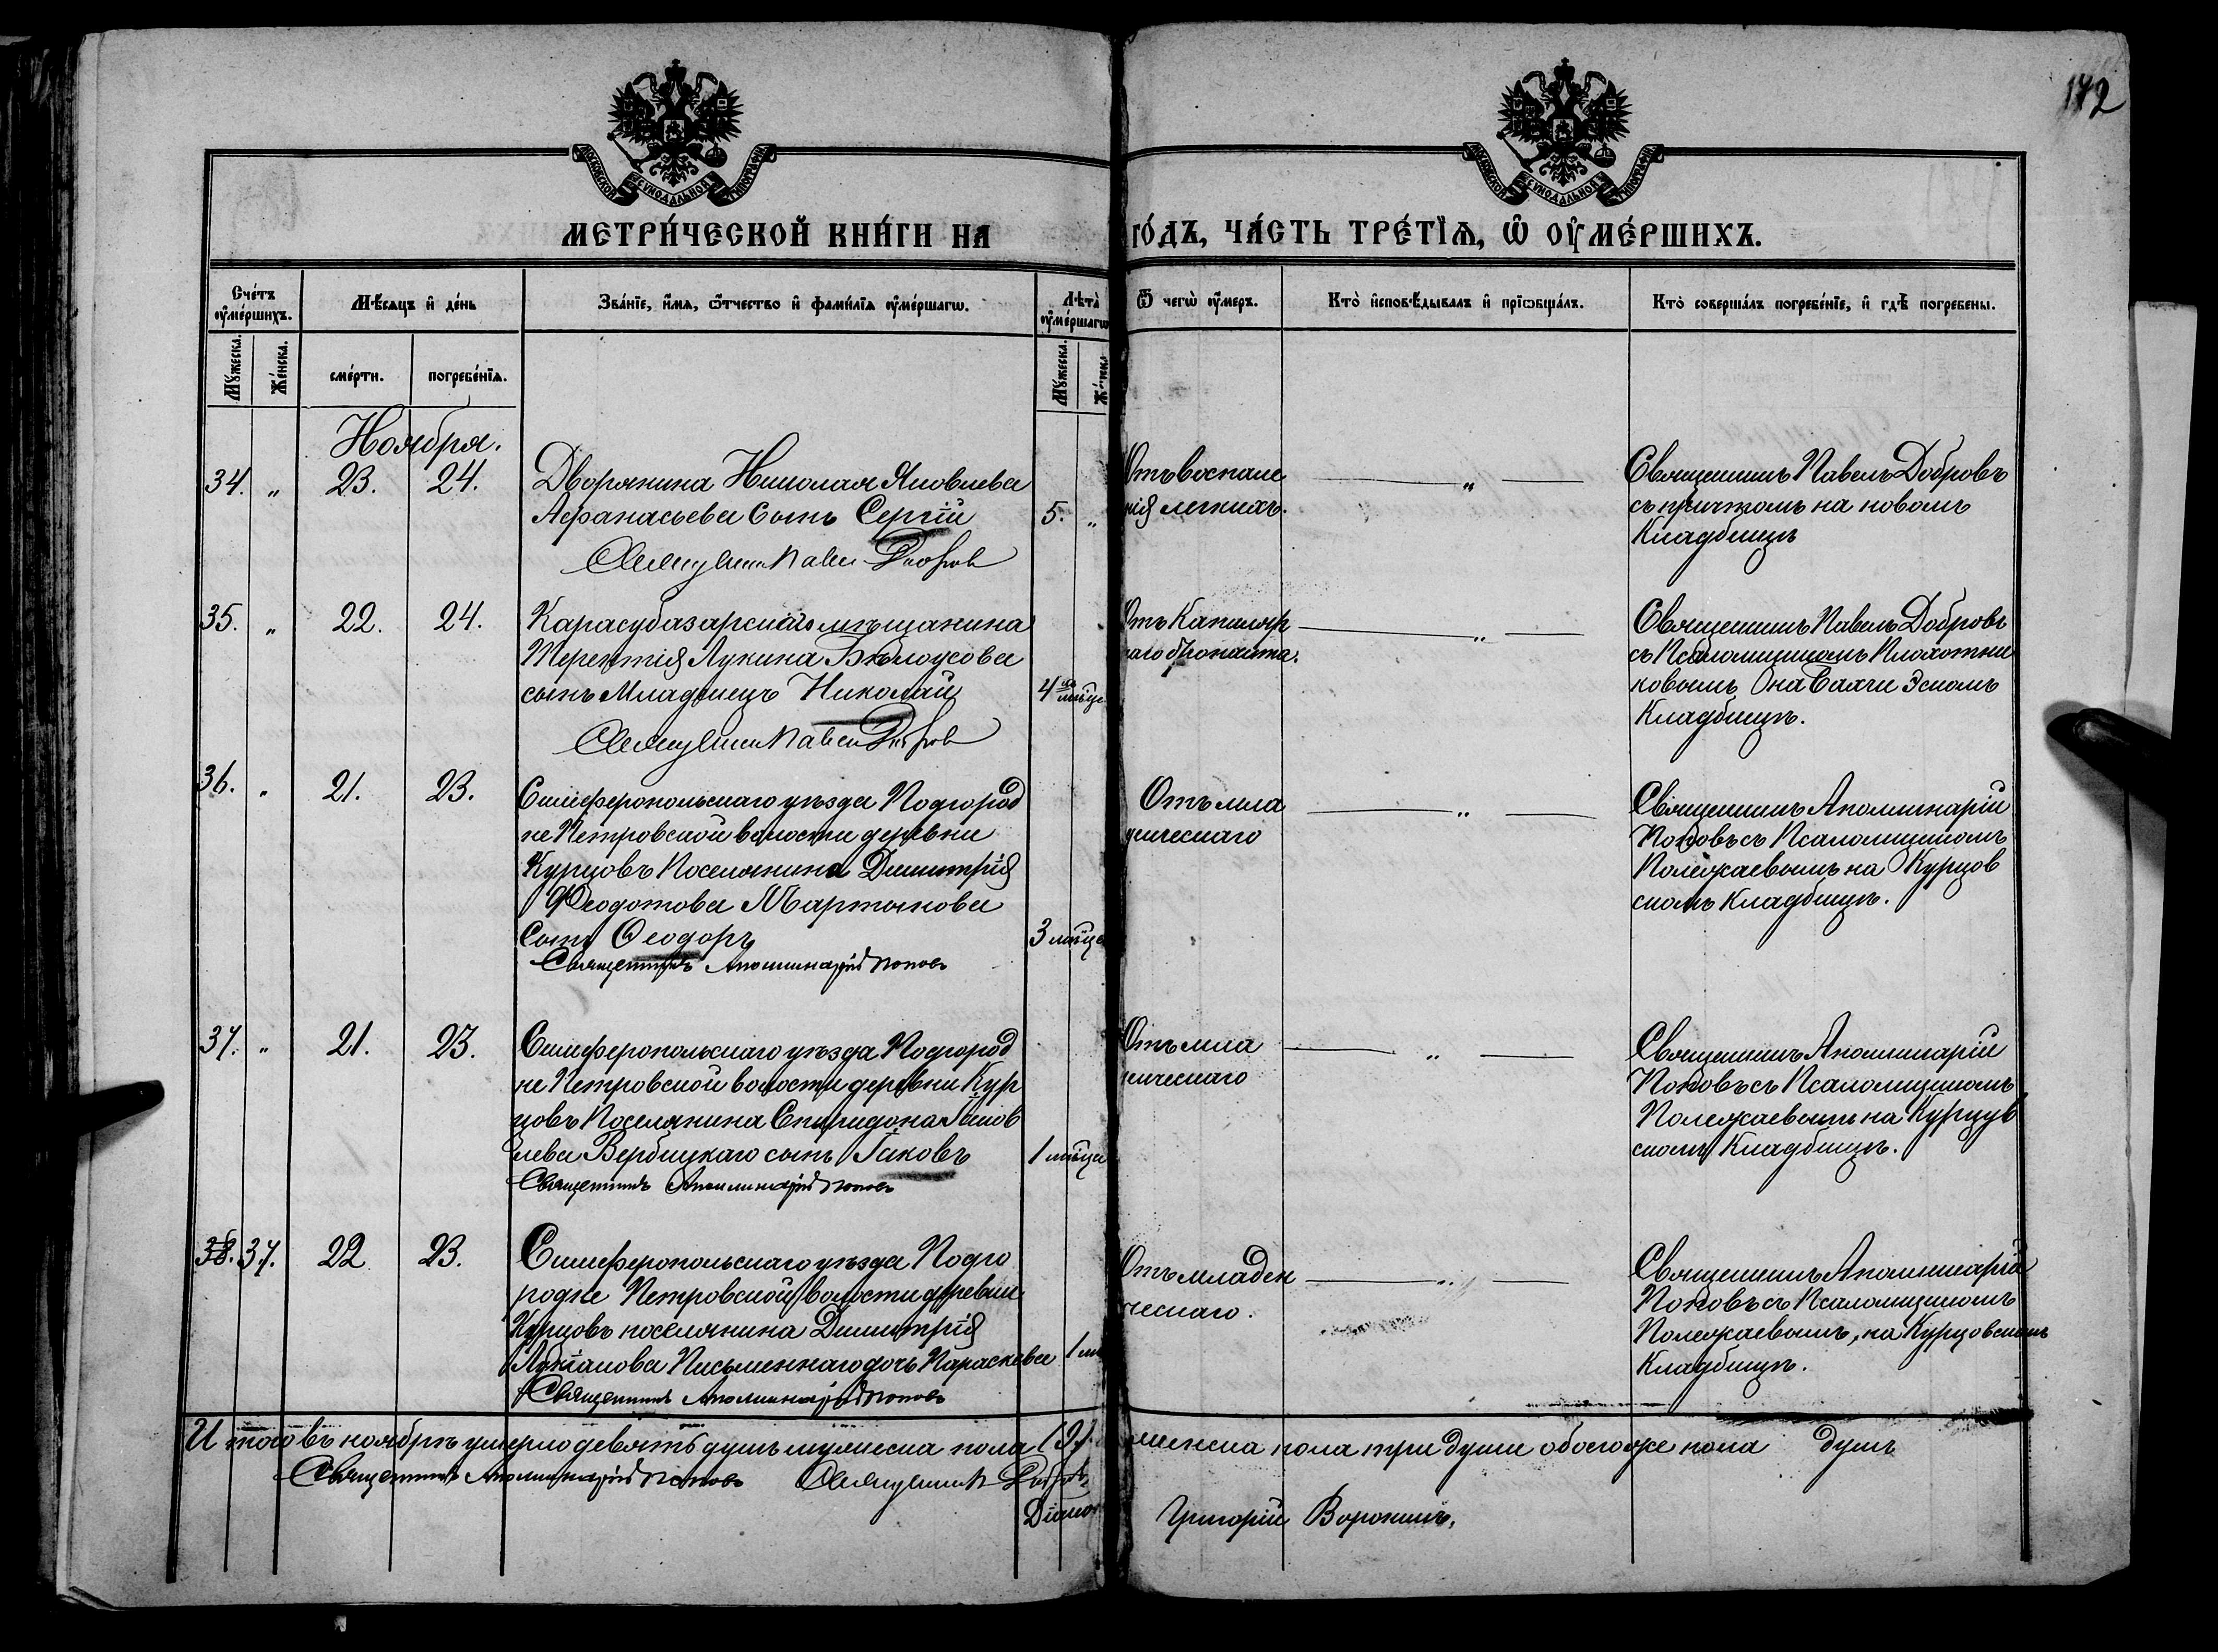 172
МОСКОВСКОЙ СѴНОДАЛЬНОЙ ТИПОГРАФІИ
МОСКОВСКОЙ СѴНОДАЛЬНОЙ ТИПОГРАФІИ
МЕТРИ́ЧЕСКОЙ КНИ́ГИ НА
ГО́ДЪ, ЧА́СТЬ ТРЕ́ТЇѦ, Ѡ҆ ОУ҆МЕ́РШИХЪ.
Сче́тъ оу҆ме́ршихъ.
Мѣ́сяцъ и҆ де́нь
Зва́нїе, и҆́мѧ, ѻ҆́тчество и҆ фами́лїѧ оу҆ме́ршагѡ.
Лѣта̀ оу҆ме́ршагѡ
Ѿ чегѡ̀ оу҆́меръ.
Кто̀ и҆сповѣ́дывалъ и҆ прїѡбща́лъ.
Кто̀ соверша́лъ погребе́нїе, и҆ гдѣ̀ погребены.
Мꙋ́жеска.
Же́нска.
сме́рти.
погребе́нїѧ.
Мꙋ́жеска.
Ноября.
34. „ 23. 24. Дворянина Николая Яковлева
Афанасьева сынъ Сергій 5. „
Священникъ Павелъ Добровъ
Отъ воспале
нія легкихъ.
„
Священникъ Павелъ Добровъ
съ причтомъ на новомъ
Кладбищѣ
35. „ 22. 24. Карасубазарскаго мѣщанина
Терентія Лукина Бѣлоусова
сынъ Младенецъ Николай 4
Священникъ Павелъ Добровъ
Отъ Капиляр
наго бронхита.
„
Священникъ Павелъ Добровъ
съ Псаломщикомъ Плохотни
ковымъ на
Кладбищѣ.
36. „ 21. 23. Симферопольскаго уѣзда Подгород
не Петровской волости деревни
Курцовъ Поселянина Димитрія
Феодотова Мартынова
Сынъ Ѳеодоръ 3 мѣсяца
Священникъ Аполлинарій Поповъ
Отъ мла
денческаго
„
Священникъ Аполлинарій
Поповъ съ Псаломщикомъ
Полежаевымъ на Курцов
скомъ Кладбищѣ.
37. „ 21. 23. Симферопольскаго уѣзда Подгород
не Петровской волости деревни Кур
цовъ Поселянина Спиридона Іаков
лева Вербицкаго сынъ Іаковъ 1 мѣсяца
Священникъ Аполлинарій Поповъ
Отъ мла
денческаго
„
Священникъ Аполлинарій
Поповъ съ Псаломщикомъ
Полежаевымъ на Курцув
скомъ Кладбищѣ.
38. 37. 22 23. Симферопольскаго уѣзда Подго
родне Петровской волости деревни
Курцовъ поселянина Димитрія
Лукіанова Письменнаго дочь Параскева 1
Священникъ Аполлинарій Поповъ
Отъ младен
ческаго.
„
Священникъ Аполлинарій
Поповъ съ Псаломщикомъ
Полежаевымъ, на Курцовскомъ
Кладбищѣ.
Итого въ ноябрѣ умерло девять душъ мужеска пола (9). женска пола три души обоего же пола душъ
Священникъ Аполлинарій Поповъ Священникъ П Добровъ
Діакон Григорій Воронинъ.